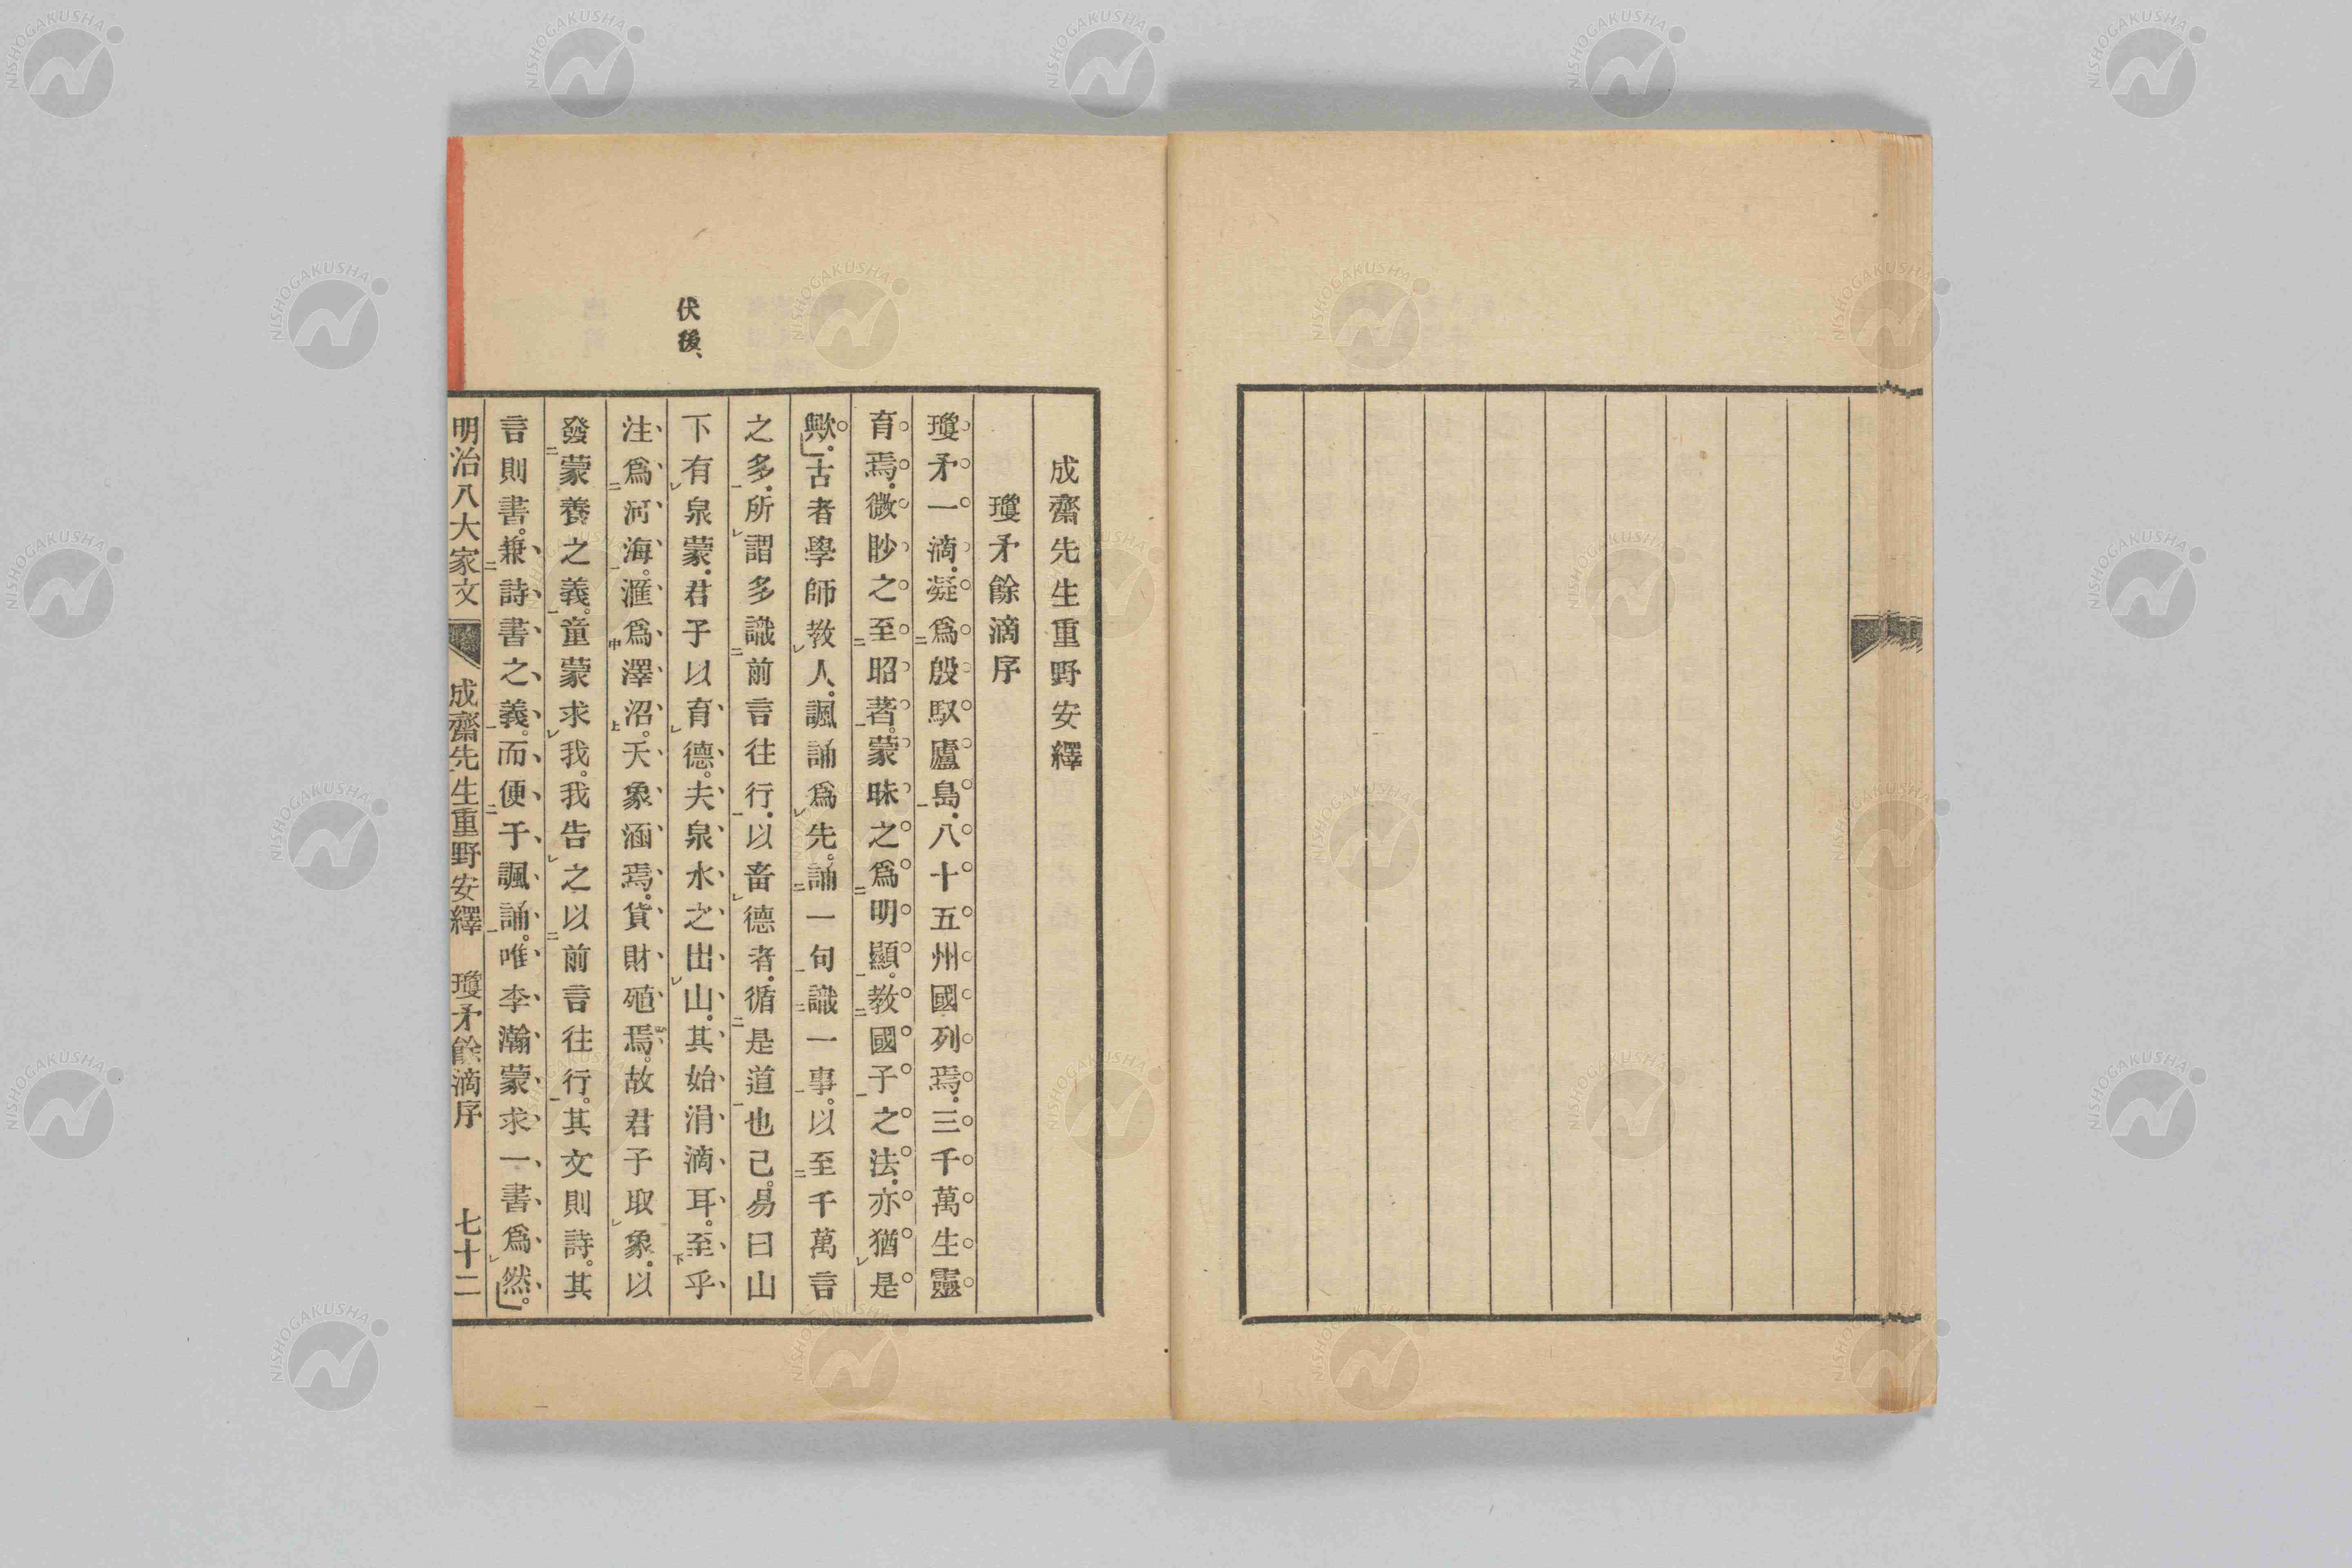 成齋先生重野安繹
瓊矛餘滴序
瓊矛一滴.凝爲殷馭廬島.八十五州國列焉.三千萬生靈
育焉.微眇之至昭著。蒙昧之爲明顯。教國子之法.亦猶是
歟.古者學師教人.諷誦爲先。誦一句識一事。以至千萬言
之多.所謂多識前言往行.以畜德者.循是道也已。易曰山
下有泉蒙.君子以育德。夫泉水之出山.其始涓滴耳。至乎
注爲河海。滙爲澤沼。天象涵焉.貨財殖焉。故君子取象.以
發蒙養之義。童蒙求我。我告之以前言往行。其文則詩。其
言則書。兼詩書之義。而便于諷誦。唯李瀚蒙求一書爲然。
伏後、
明治八大家文 成齋先生重野安繹 瓊矛餘滴序 七十二
NISHOGAKUSHA